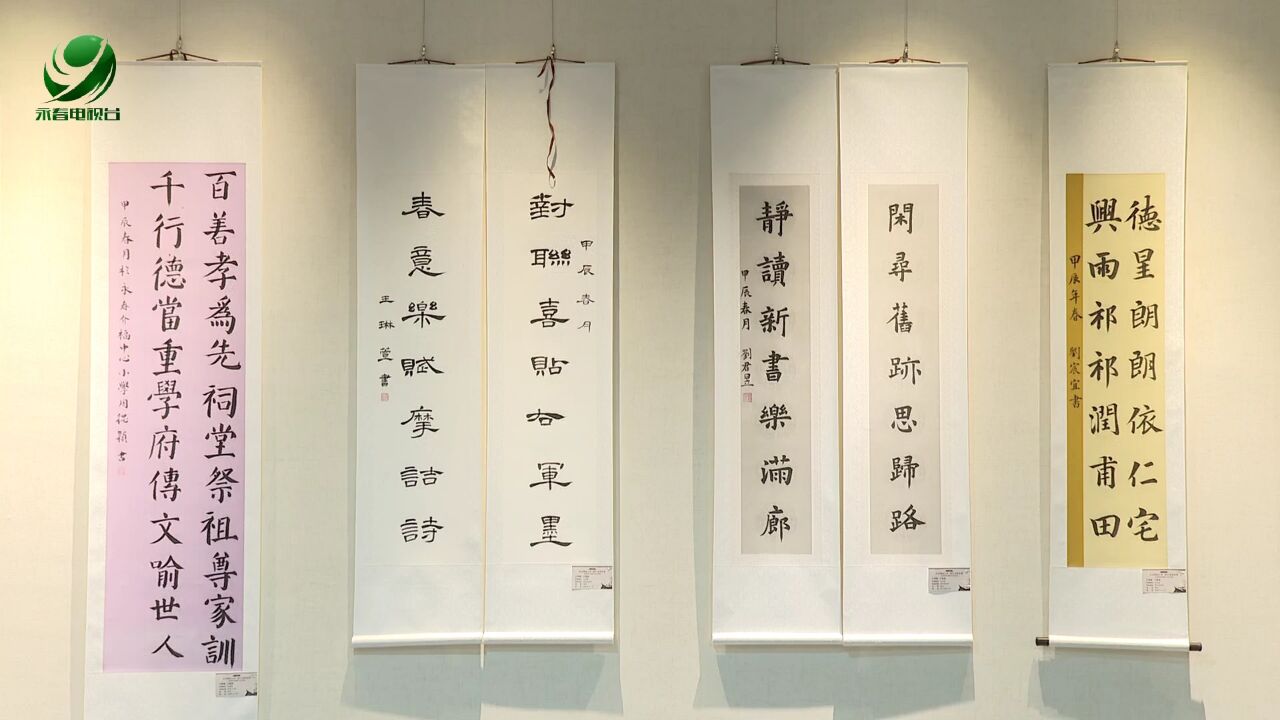 永春电视台
百善孝爲先祠堂祭祖尊家訓
千行德當重學府傳文喻世人
甲辰春月於永春介福中心小學周穎書
對聯喜貼右軍墨
甲辰春月
春意樂賦摩詰詩
王琳萱書
閑尋舊跡思歸路
靜讀新書樂滿廊
甲辰春月 劉君昱
德星朗朗依仁宅
興雨祁祁潤甫田
甲辰年春 劉宸宜書